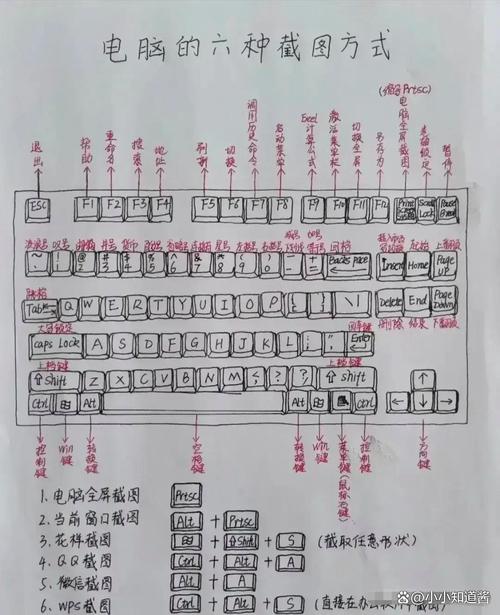 电脑的六种截图方式
(缩写Prtsc)
退出 帮助 重命名 搜索 地址 刷新 切换 调用历史命令 启动菜单 Excel计算公式 激活菜单栏 切换全屏 另存为 电脑全屏截图 暂停
ESC F1 F2 F3 F4 F5 F6 F7 F8 F9 F10 F11 F12 Print Scroll Lock Pause Break
波浪号 叹号 井号 货币 星号 减号 加号 回格
~ ! @ 2 # 3 $ 4 % 5 ^ 6 & 7 * 8 ( 9 ) 0 - + = Back space Insert Home Page UP
Tab Q W E R T Y U I O P { [ } ] \ | Delete End Page Down
删除 结束 下翻页
大写锁定 回车键
caps Lock A S D F G H J K L : ; " ' Enter
上档键 上档键
⇧ Shift Z X C V B N M < , > . ? / ⇧ Shift ↑
Ctrl ⊞ Alt Alt ⊞ Ctrl ← ↓ →
控制键 Win键 转换键 空格键 转换键 Win键 菜单键(鼠标右键) 控制键 方向键
1. 电脑全屏截图 Prtsc
2. 当前窗口截图 Alt + Prtsc
3. 花样截图 ⊞ + ⇧Shift + S (截取任意形状)
4. QQ截图 Ctrl + Alt + A
5. 微信截图 Alt + A
6. WPS截图 Ctrl + Alt + S (直接在办
@小小知道酱